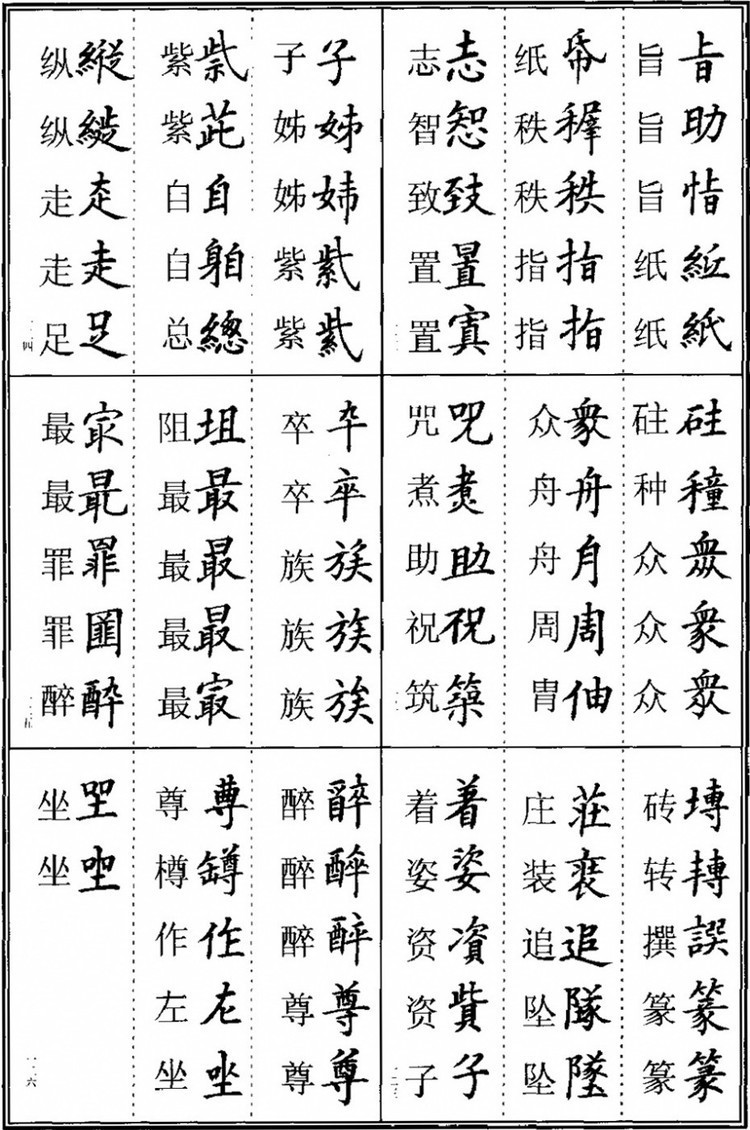 㫖助恉紙
旨旨旨纸纸
帋秩指指
纸秩秩指指
志致置寘
志智致置置
硅穜眾衆衆
砫种众众众
衆舟舟周伷
众舟舟周胄
咒煑助祝築
咒煮助祝筑
塼轉譔篆篆
砖转撰篆篆
莊追隊墜
庄装追坠坠
着姿資貲子
着姿资资子
子姊姉紫紫
子姊姊紫紫
紫茈自總
紫紫自自总
縱走走足
纵纵走走足
一一四
卆卒族族族
卒卒族族族
坥最最最㝡
阻最最最最
㝡最罪醉
最最罪罪醉
一一五
醉醉尊尊
醉醉醉尊尊
尊罇作左坐
尊樽作左坐
坐
坐坐
一一六